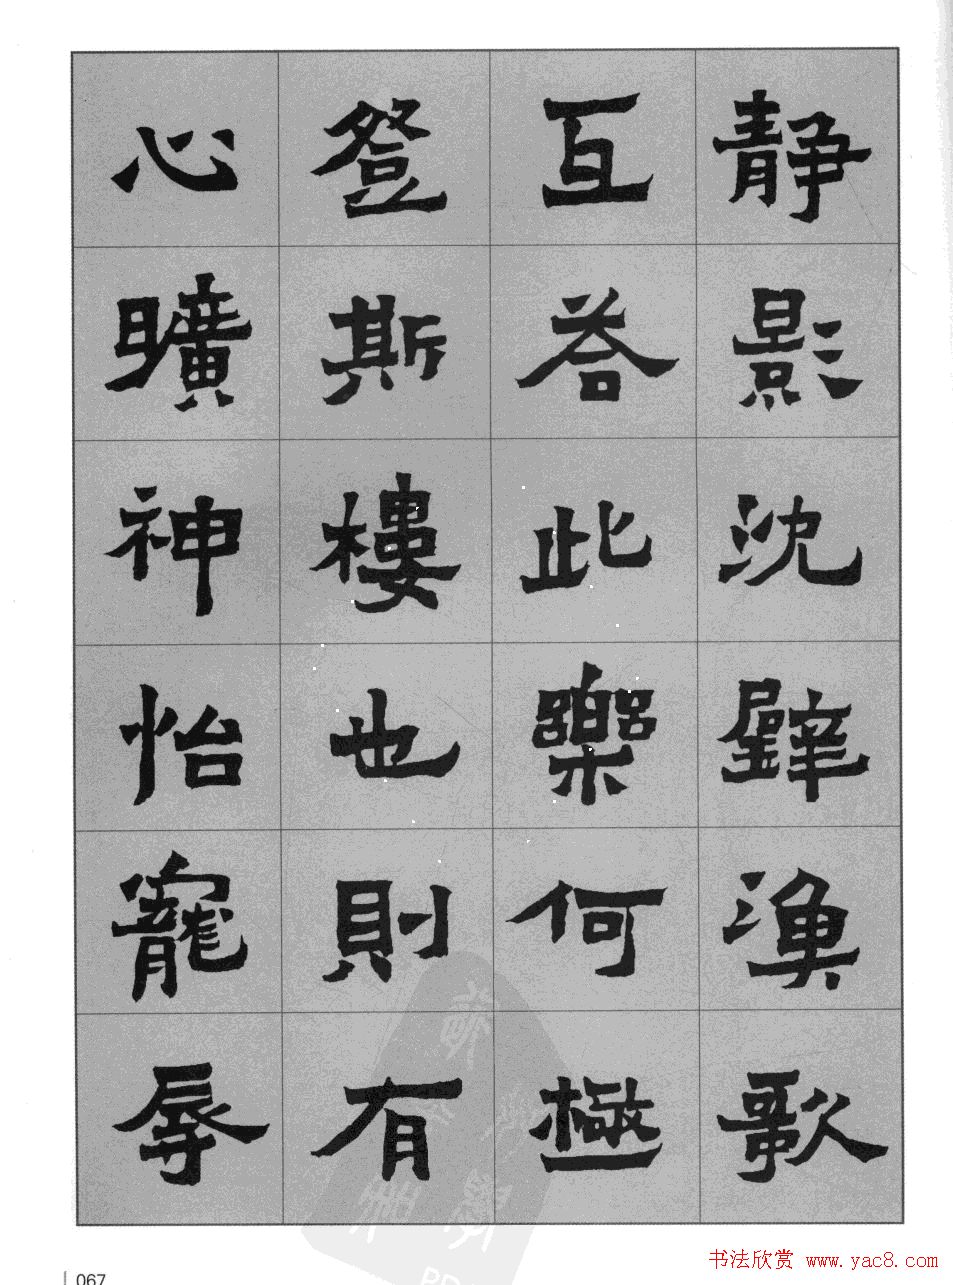 静影沈璧漁歌
互荅此樂何極
登斯樓也則有
心曠神怡寵辱
067
书法欣赏 www.yac8.com